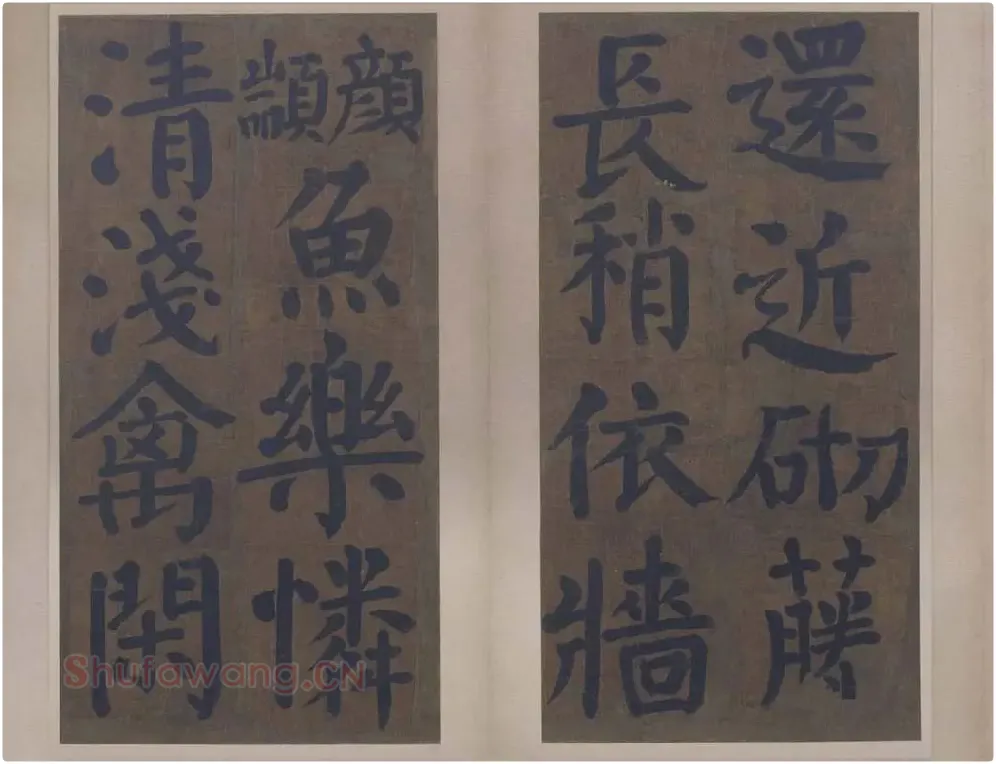 還近砌藤
長稍依牆
顔顓魚樂憐
清淺禽閑
Shufawang.CN